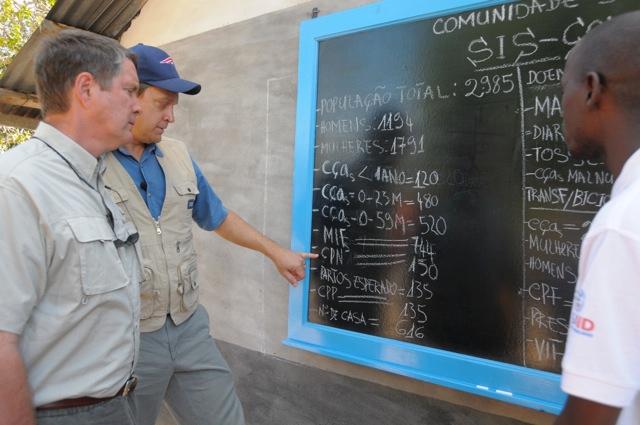 COMUNIDADE
SIS-CO
- POPULAÇÃO TOTAL: 2985
- HOMENS: 1194
- MULHERES: 1791
- CÇAS < 1ANO = 120
- CÇAS = 0-23M = 480
- CÇAS = 0-59M = 520
- MIF = 744
- CPN = 150
- PARTOS ESPERADO = 135
- CPP = 135
- Nº DE CASA = 616
DOEN
- MA
- DIAR
- TOS
- CÇAS MALNU
TRANSF/BICIC
- MULHER
HOMENS
- CPF =
- PRES
- VIT